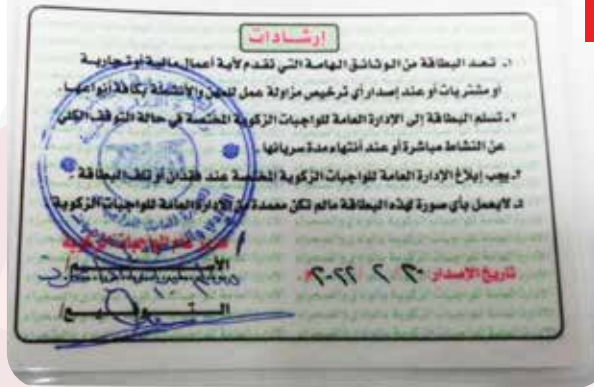 إرشادات
١. تعد البطاقة من الوثائق الهامة التي تقدم لأية أعمال مالية أو تجارية
أو مشتريات أو عند إصدار أي ترخيص مزاولة عمل للمهن والأنشطة بكافة أنواعها.
٢. تسلم البطاقة إلى الإدارة العامة للواجبات الزكوية المختصة في حالة التوقف الكلي
عن النشاط مباشرة أو عند انتهاء مدة سريانها
٣. يجب إبلاغ الإدارة العامة للواجبات الزكوية المختصة عند فقدان أو تلف البطاقة
٤. لا يعمل بأي صورة لهذه البطاقة مالم تكن معمدة من الإدارة العامة للواجبات الزكوية
مدير عام الواجبات الزكوية
الاسم/
تاريخ الاصدار ٢٠ / ٢ / ٢٠٢٢م
التوقيع/